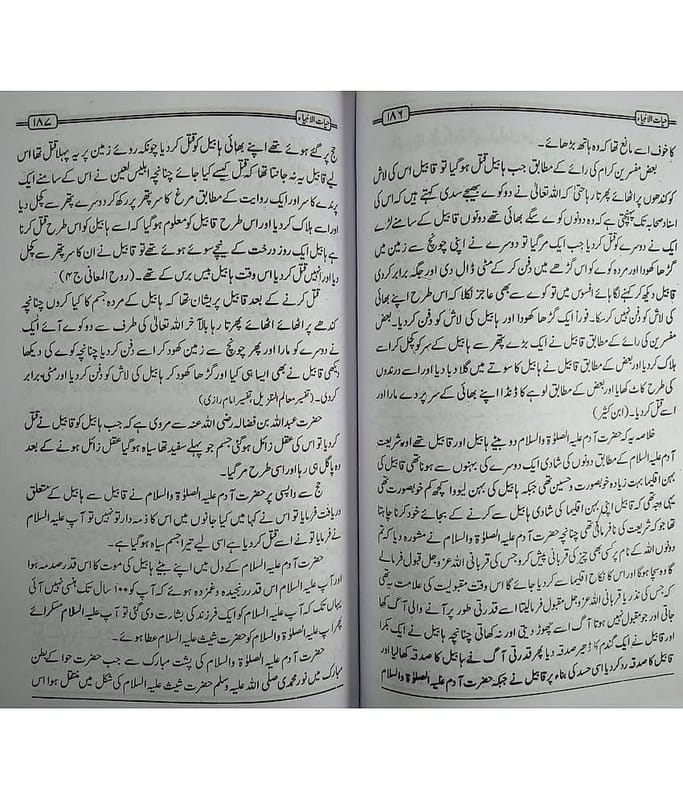 حیات الانبیاء ۱۸۶
کا خوف اسے مانع تھا کہ وہ ہاتھ بڑھائے۔
بعض مفسرین کرام کی رائے کے مطابق جب ہابیل قتل ہو گیا تو قابیل اس کی لاش
کو کندھوں پر اٹھائے پھرتا رہا حتیٰ کہ اللہ تعالیٰ نے دو کوے بھیجے سدی کہتے ہیں کہ اس کی
اسناد صحابہ تک پہنچتی ہے کہ وہ دونوں کوے سگے بھائی تھے دونوں قابیل کے سامنے لڑے
ایک نے دوسرے کو قتل کر دیا جب ایک مر گیا تو دوسرے نے اپنی چونچ سے زمین میں
گڑھا کھودا اور مردہ کوے کو اس گڑھے میں دفن کر کے مٹی ڈال دی اور جگہ برابر کر دی
قابیل دیکھ کر کہنے لگا ہائے افسوس میں تو کوے سے بھی عاجز نکلا کہ اس طرح اپنے بھائی
کی لاش کو دفن نہیں کر سکا۔ فوراً ایک گڑھا کھودا اور ہابیل کی لاش کو دفن کر دیا۔ بعض
مفسرین کی رائے کے مطابق قابیل نے ایک بڑے پتھر سے ہابیل کے سر کو کچل کر اسے
ہلاک کر دیا اور بعض کے مطابق قابیل نے ہابیل کا سوتے میں گلا دبا دیا اور اسے درندوں
کی طرح کاٹ کھایا اور بعض کے مطابق لوہے کا ڈنڈا اپنے بھائی کے سر پر دے مارا اور
اسے قتل کر دیا۔ (ابن کثیر)
خلاصہ یہ کہ حضرت آدم علیہ الصلوٰۃ والسلام کے دو بیٹے ہابیل اور قابیل تھے اور شریعت
آدم علیہ السلام کے مطابق دونوں کی شادی ایک دوسرے کی بہنوں سے ہونا تھی قابیل کی
بہن اقلیما بہت زیادہ خوبصورت و حسین تھی جبکہ ہابیل کی بہن لیودا کچھ کم خوبصورت تھی
یہی وجہ تھی کہ قابیل اپنی بہن اقلیما کی شادی ہابیل سے کرنے کے بجائے خود کرنا چاہتا
تھا جو کہ شریعت کی نافرمانی تھی چنانچہ حضرت آدم علیہ الصلوٰۃ والسلام نے مشورہ دیا کہ تم
دونوں اللہ کے نام پر کسی بھی چیز کی قربانی پیش کرو جس کی قربانی اللہ عزوجل قبول فرمالے
گا وہ سچا ہوگا اور اس کا نکاح اقلیما سے کر دیا جائے گا اس وقت مقبولیت کی علامت یہ تھی
کہ جس کی نذر یا قربانی اللہ عزوجل مقبول فرما لیتا اسے قدرتی طور پر آنے والی آگ کھا
جاتی اور جو مقبول نہیں ہوتا آگ اسے چھوڑ دیتی اور نہ کھاتی چنانچہ ہابیل نے ایک بکرا
اور قابیل نے ایک گندم کا ڈھیر صدقہ دیا پھر قدرتی آگ نے ہابیل کا صدقہ کھا لیا اور
قابیل کا صدقہ رد کر دیا اسی حسد کی بناء پر قابیل نے جبکہ حضرت آدم علیہ الصلوٰۃ والسلام
حیات الانبیاء ۱۸۷
حج پر گئے ہوئے تھے اپنے بھائی ہابیل کو قتل کر دیا چونکہ روئے زمین پر یہ پہلا قتل تھا اس
لیے قابیل یہ نہ جانتا تھا کہ قتل کیسے کیا جائے چنانچہ ابلیس لعین نے اس کے سامنے ایک
پرندے کا سر اور ایک روایت کے مطابق مرغ کا سر پتھر پر رکھ کر دوسرے پتھر سے کچل دیا
اور اسے ہلاک کر دیا اور اس طرح قابیل کو معلوم ہو گیا کہ اسے ہابیل کو اس طرح قتل کرنا
ہے ہابیل ایک روز درخت کے نیچے سوئے ہوئے تھے تو قابیل نے ان کا سر پتھر سے کچل
دیا اور انہیں قتل کر دیا اس وقت ہابیل بیس برس کے تھے۔ (روح المعانی ج ۴)
قتل کرنے کے بعد قابیل پریشان تھا کہ ہابیل کے مردہ جسم کا کیا کروں چنانچہ
کندھے پر اٹھائے اٹھائے پھرتا رہا بالآخر اللہ تعالیٰ کی طرف سے دو کوے آئے ایک
نے دوسرے کو مارا اور پھر چونچ سے زمین کھود کر اسے دفن کر دیا چنانچہ کوے کی دیکھا
دیکھی قابیل نے بھی ایسا ہی کیا اور گڑھا کھود کر ہابیل کی لاش کو دفن کر دیا اور مٹی برابر
کر دی۔ (تفسیر معالم التنزیل، تفسیر امام رازی)
حضرت عبداللہ بن فضالہ رضی اللہ عنہ سے مروی ہے کہ جب ہابیل کو قابیل نے قتل
کر دیا تو اس کی عقل زائل ہو گئی جسم جو پہلے سفید تھا سیاہ ہو گیا عقل زائل ہونے کے بعد
وہ پاگل ہی رہا اور اسی طرح مر گیا۔
حج سے واپسی پر حضرت آدم علیہ الصلوٰۃ والسلام نے قابیل سے ہابیل کے متعلق
دریافت فرمایا تو اس نے کہا میں کیا جانوں میں اس کا ذمہ دار تو نہیں تو آپ علیہ السلام
نے فرمایا تو نے اسے قتل کر دیا ہے اسی لیے تیرا جسم سیاہ ہو گیا ہے۔
حضرت آدم علیہ السلام کے دل میں اپنے بیٹے ہابیل کی موت کا اس قدر صدمہ ہوا
اور آپ علیہ السلام اس قدر رنجیدہ و غمزدہ ہوئے کہ آپ کو ۱۰۰ سال تک ہنسی نہیں آئی
یہاں تک کہ آپ علیہ السلام کو ایک فرزند کی بشارت دی گئی تو آپ علیہ السلام مسکرائے
پھر آپ علیہ الصلوٰۃ والسلام کو حضرت شیث علیہ السلام عطا ہوئے۔
حضرت آدم علیہ الصلوٰۃ والسلام کی پشت مبارک سے جب حضرت حوا کے بطن
مبارک میں نور محمدی صلی اللہ علیہ وسلم حضرت شیث علیہ السلام کی شکل میں منتقل ہوا اس